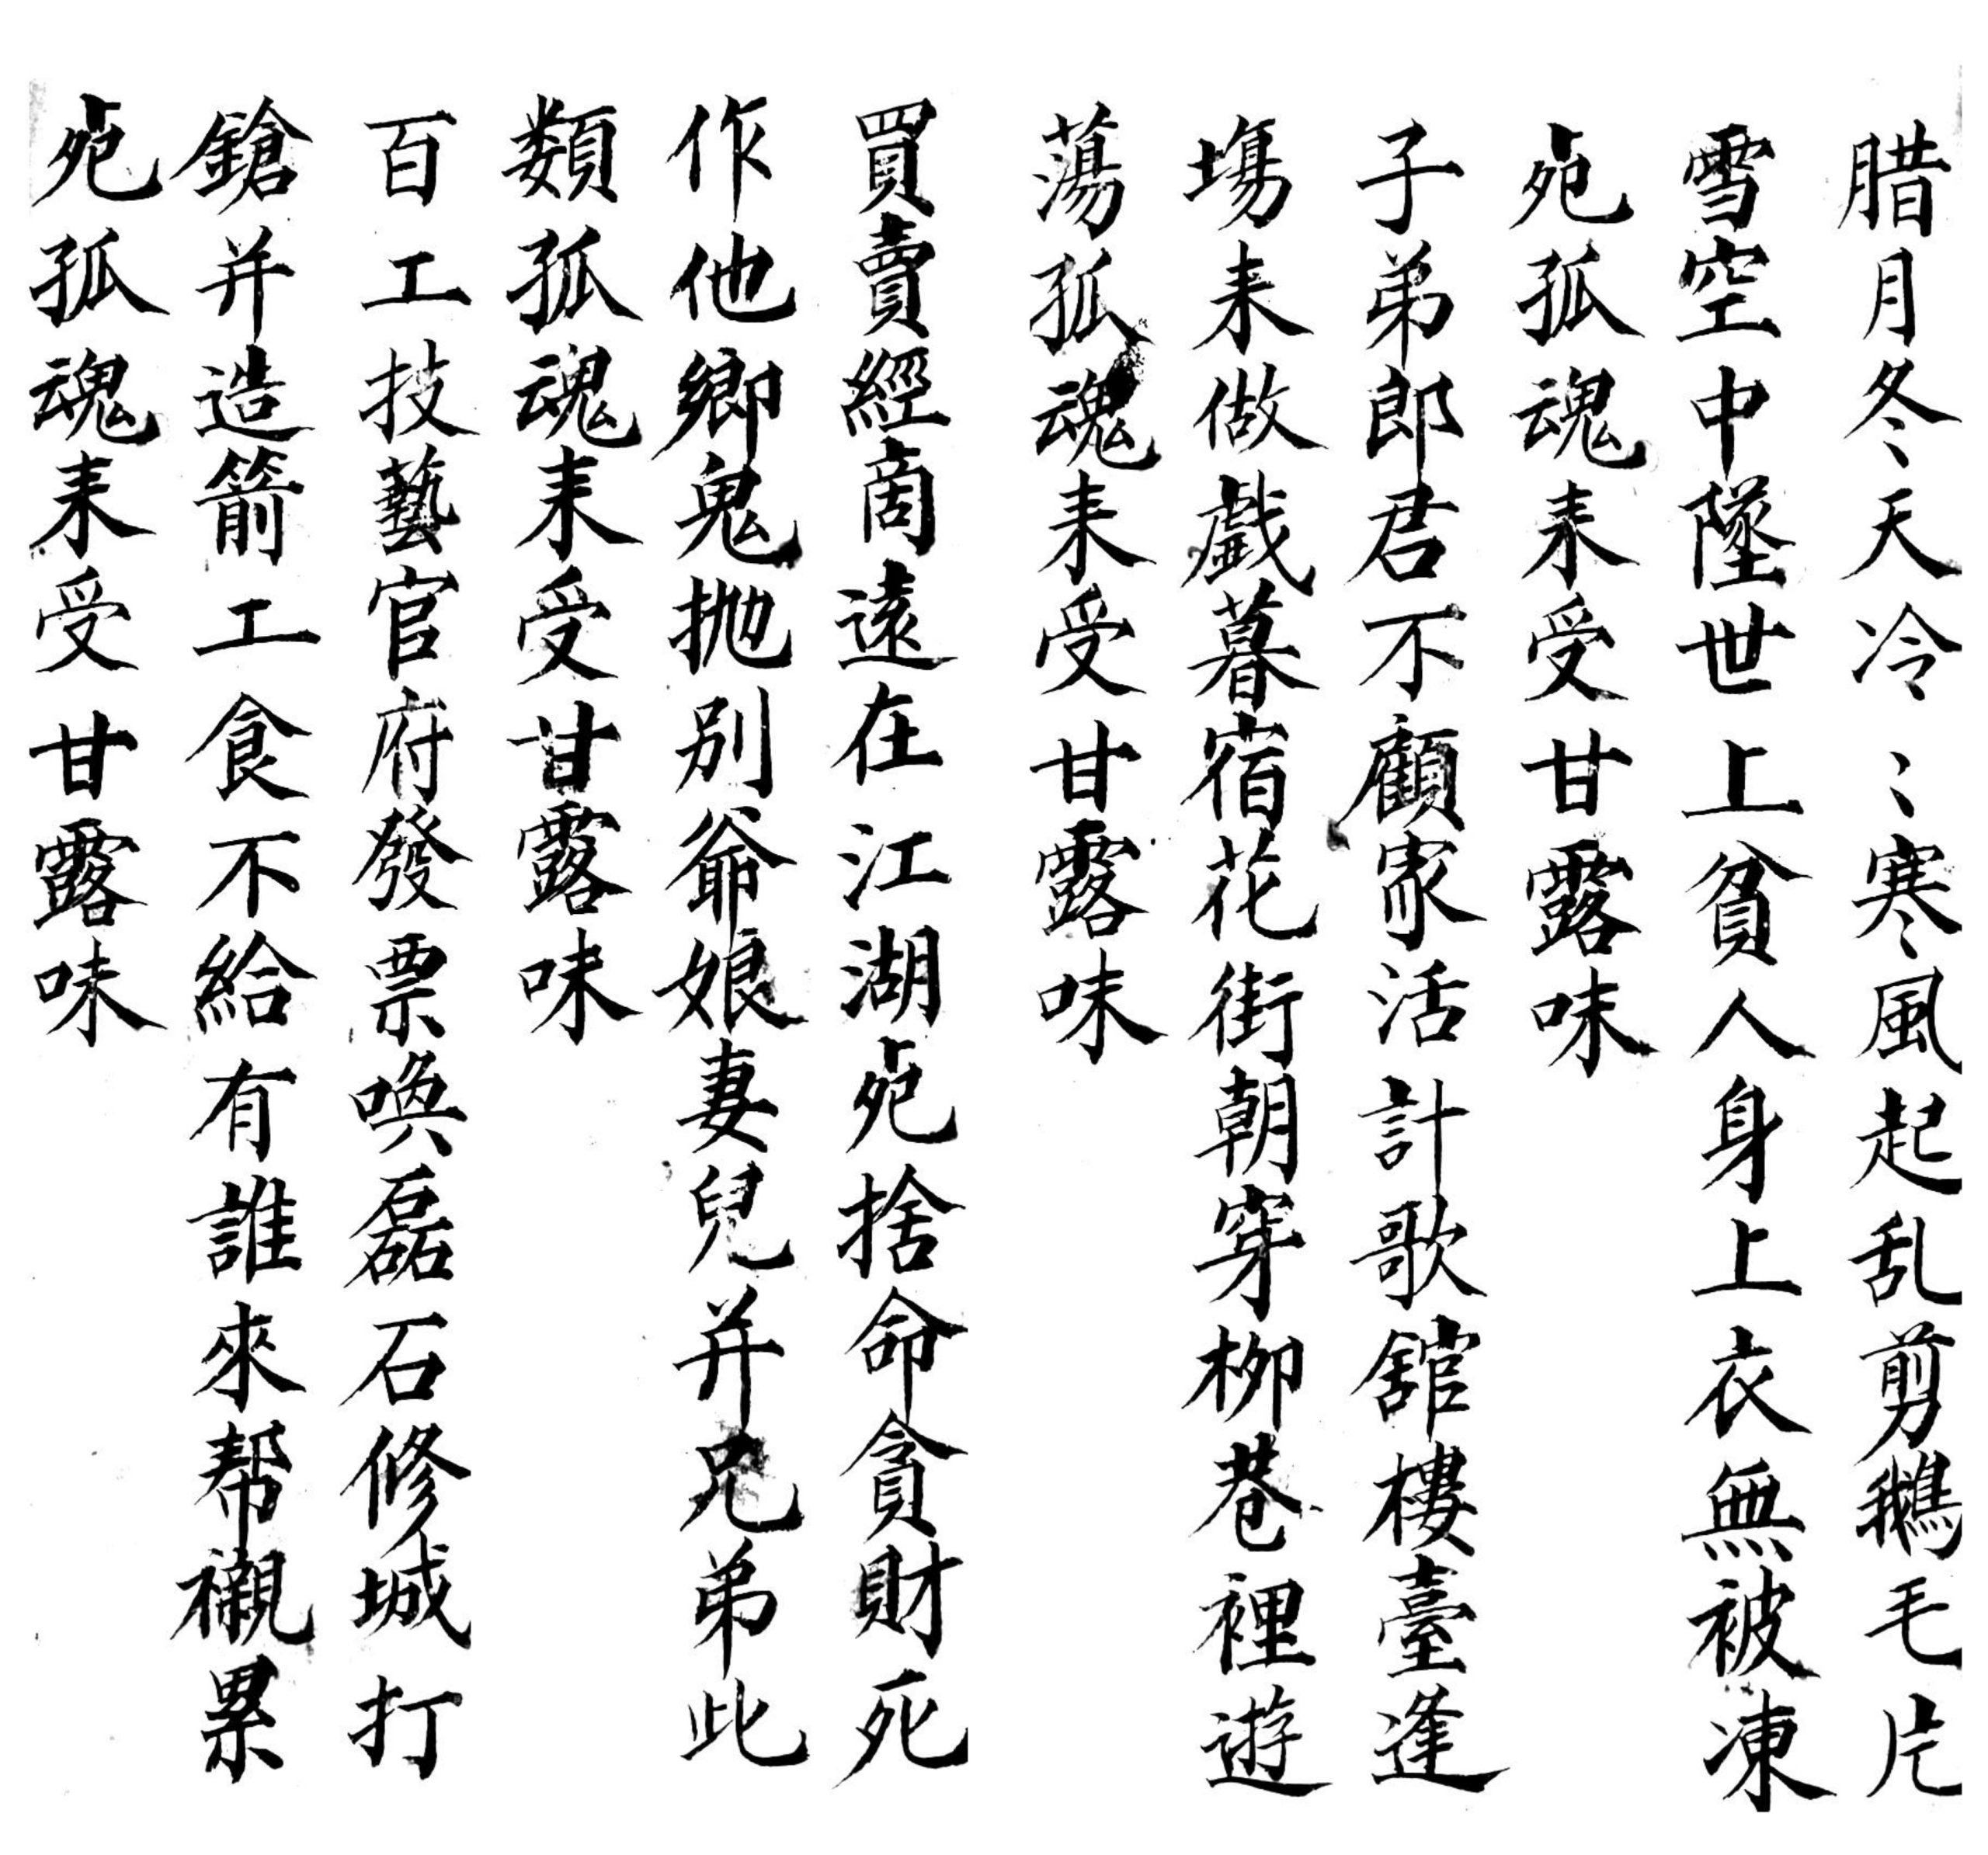 腊月冬天冷〻寒風起乱剪鵝毛片
雪空中墜世上貧人身上衣無被凍
死孤魂來受甘露味
子弟郎君不顧家活計歌舘樓臺逢
塲来做戲暮宿花街朝穿柳巷裡遊
蕩孤魂来受甘露味
買賣經商遠在江湖死捨命貪財死
作他鄉鬼抛別爺娘妻兒并兄弟此
類孤魂来受甘露味
百工技藝官府發票喚磊石修城打
鎗并造箭工食不給有誰來帮襯累
死孤魂来受甘露味